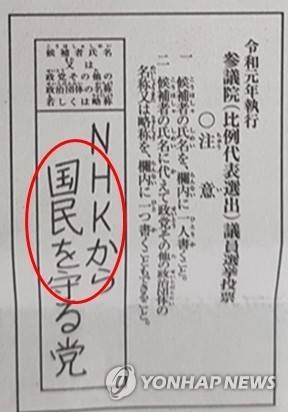 令和元年執行
参議院(比例代表選出)議員選挙投票
〇注意
一 候補者の氏名を、欄内に一人書くこと。
二 候補者の氏名に代えて政党その他の政治団体の
名称又は略称を、欄内に一つ書くこともできること。
候補者氏名
又は
政党その他の
政治団体の名称
若しくは略称
NHKから
国民を守る党
YONHAP NEWS